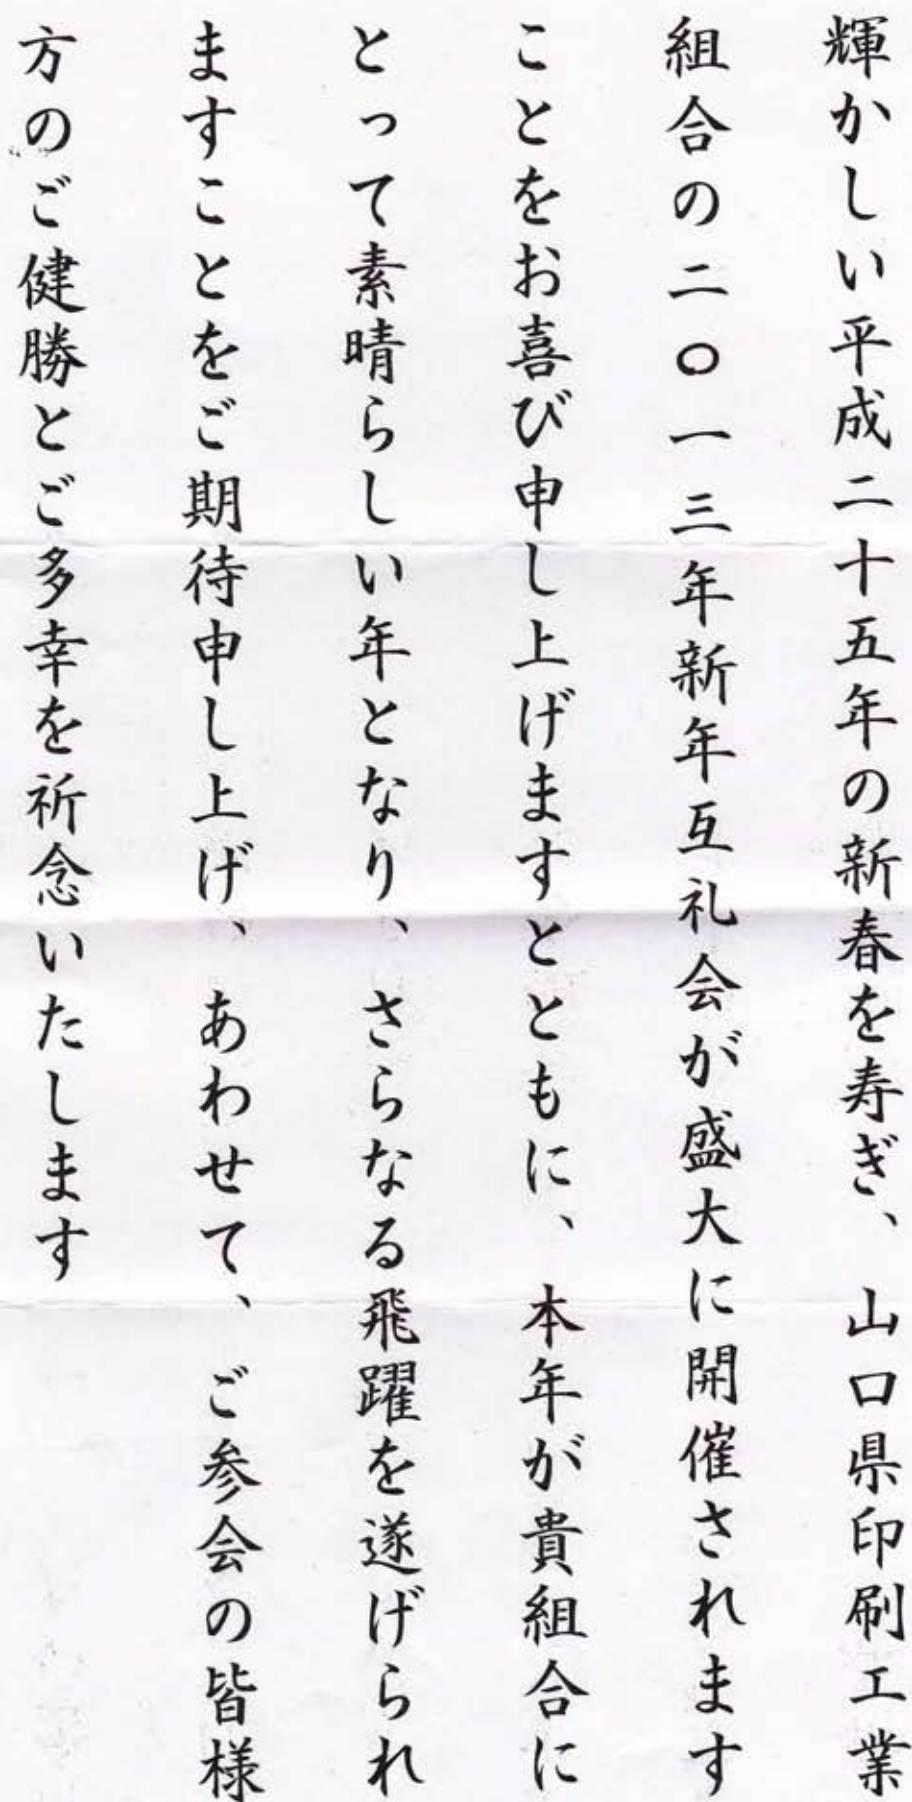 輝かしい平成二十五年の新春を寿ぎ、山口県印刷工業
組合の二〇一三年新年互礼会が盛大に開催されます
ことをお喜び申し上げますとともに、本年が貴組合に
とって素晴らしい年となり、さらなる飛躍を遂げられ
ますことをご期待申し上げ、あわせて、ご参会の皆様
方のご健勝とご多幸を祈念いたします